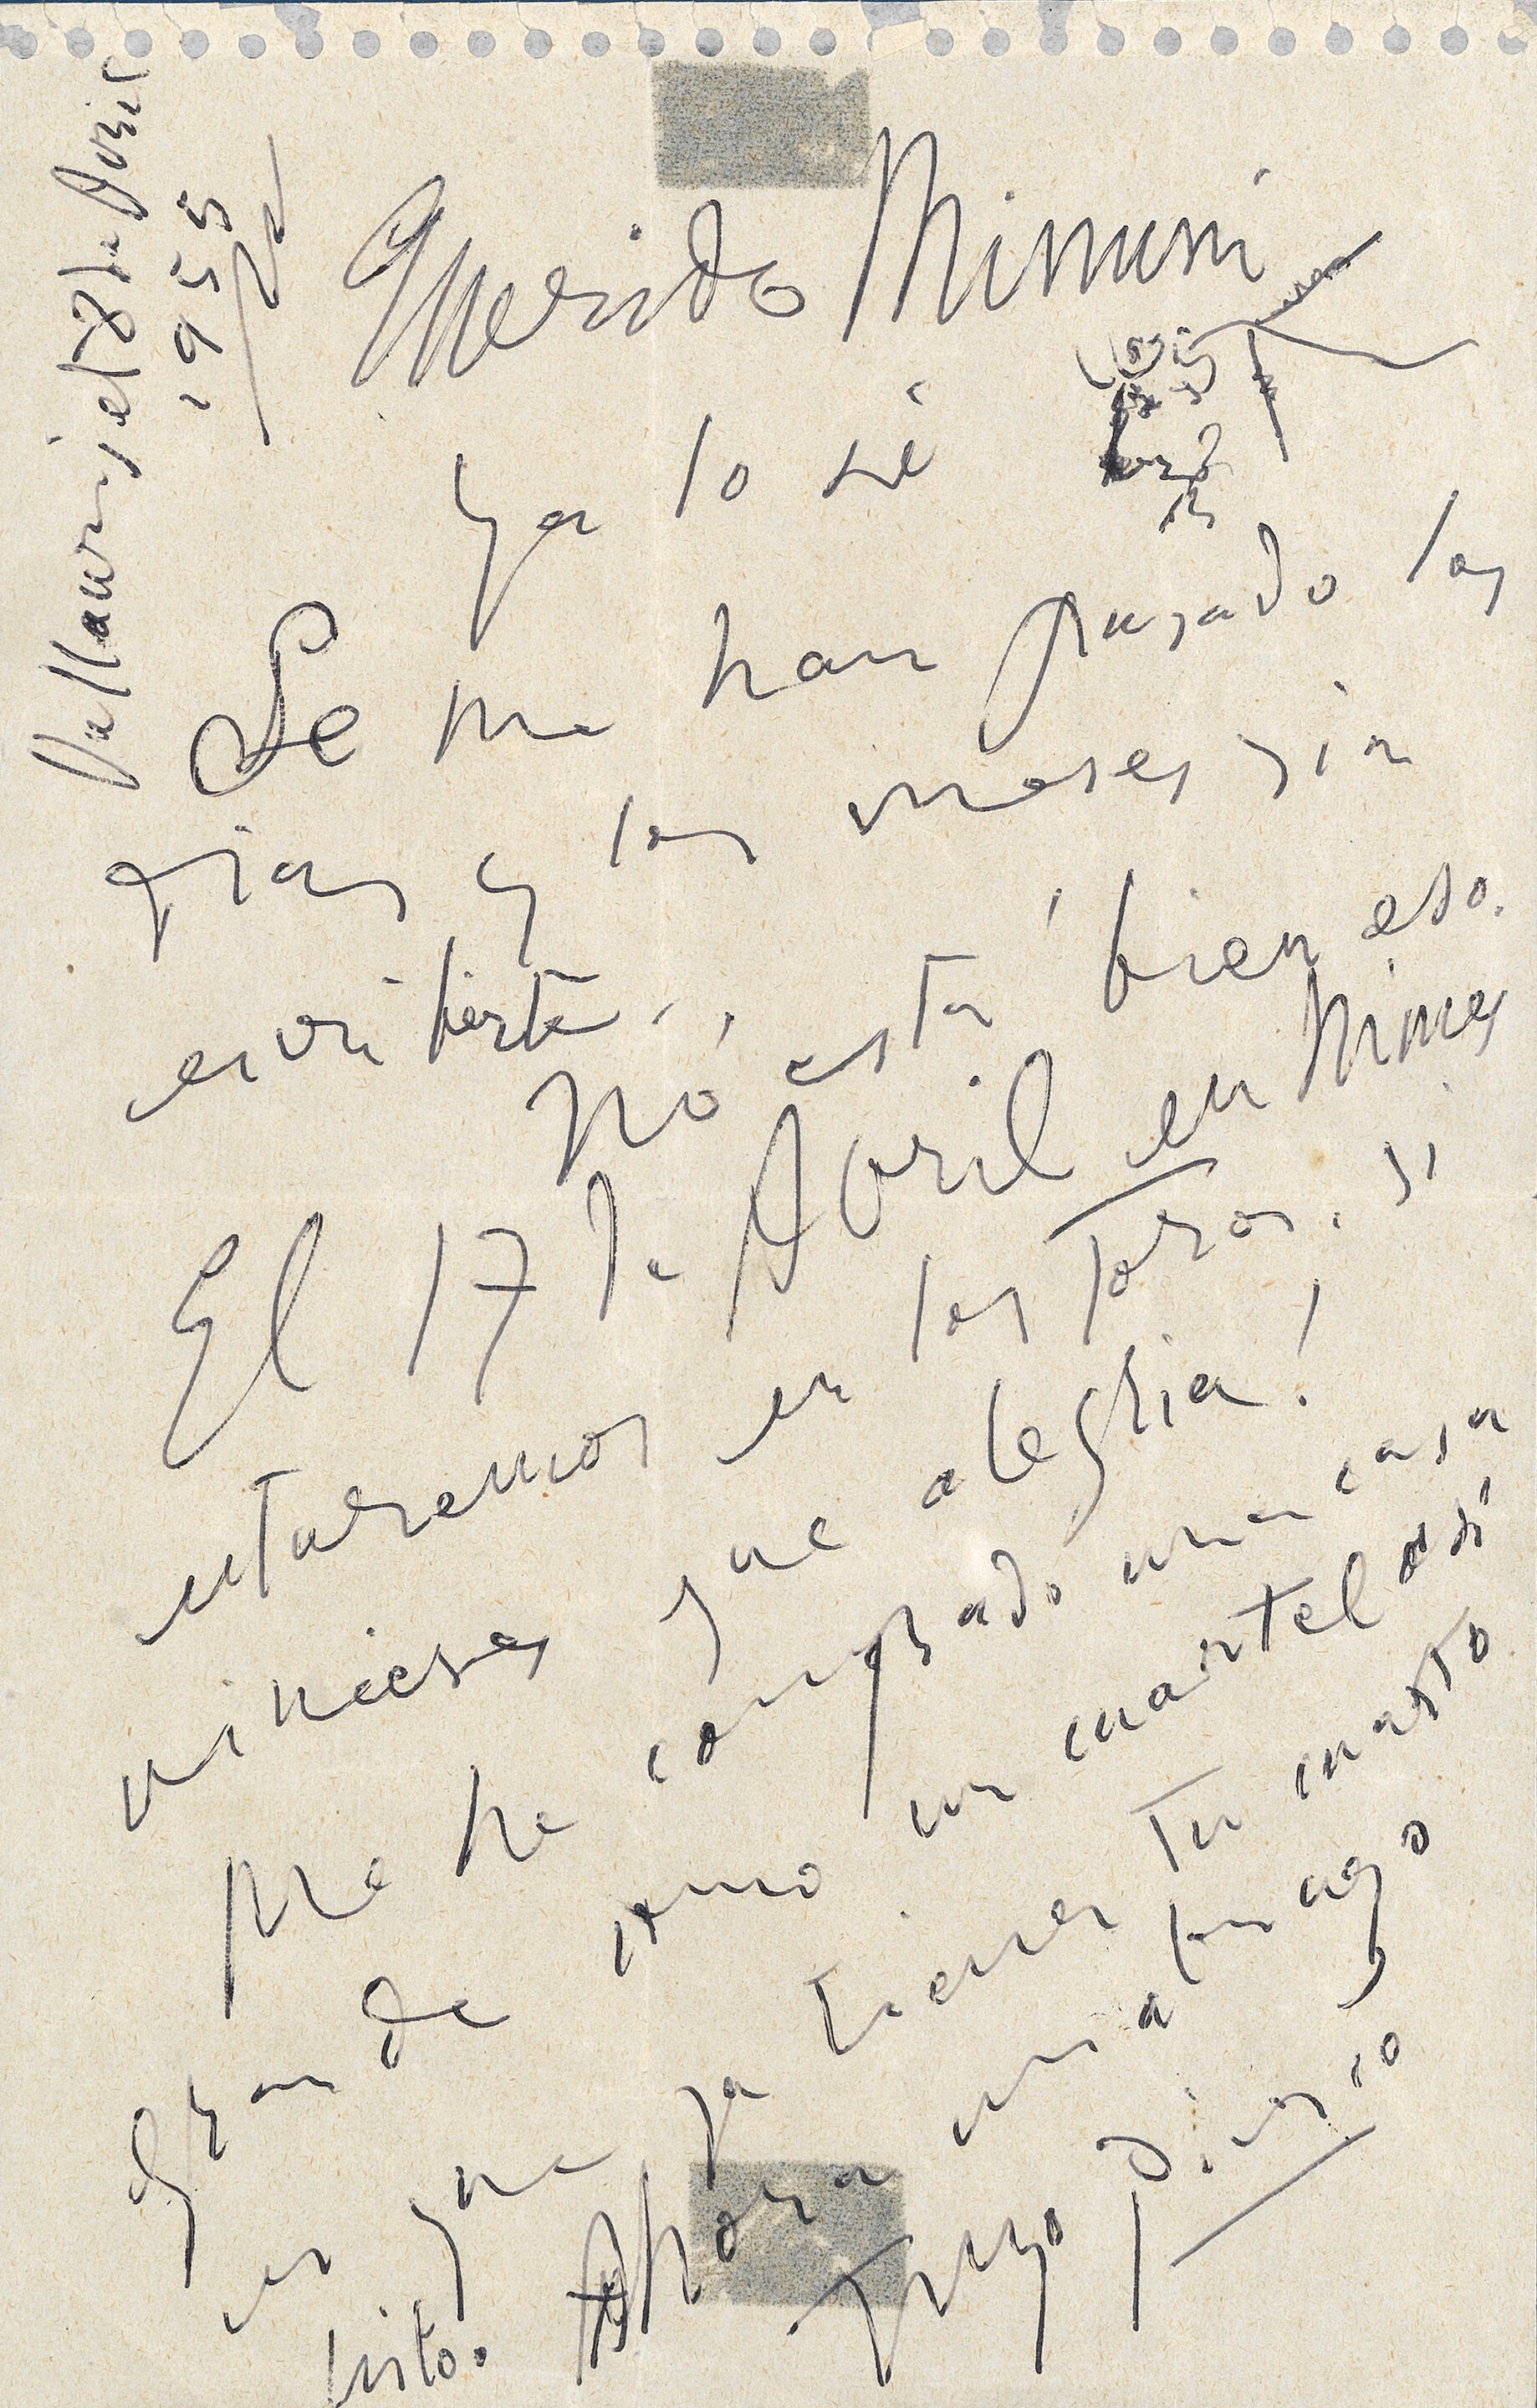 Vallauris el 8 de Avril
1955
Querido Minuni
ya lo sé
Se me han pasado los
dias y los meses sin
escribirte.
No está bien eso.
El 17 de Avril en Nimes
estaremos en los Toros. si
vinieses que alegria!
Me he comprado una casa
grande como un cuartel asi
es que ya tienes tu cuarto
listo. Ahora un abrazo
Tuyo Picasso